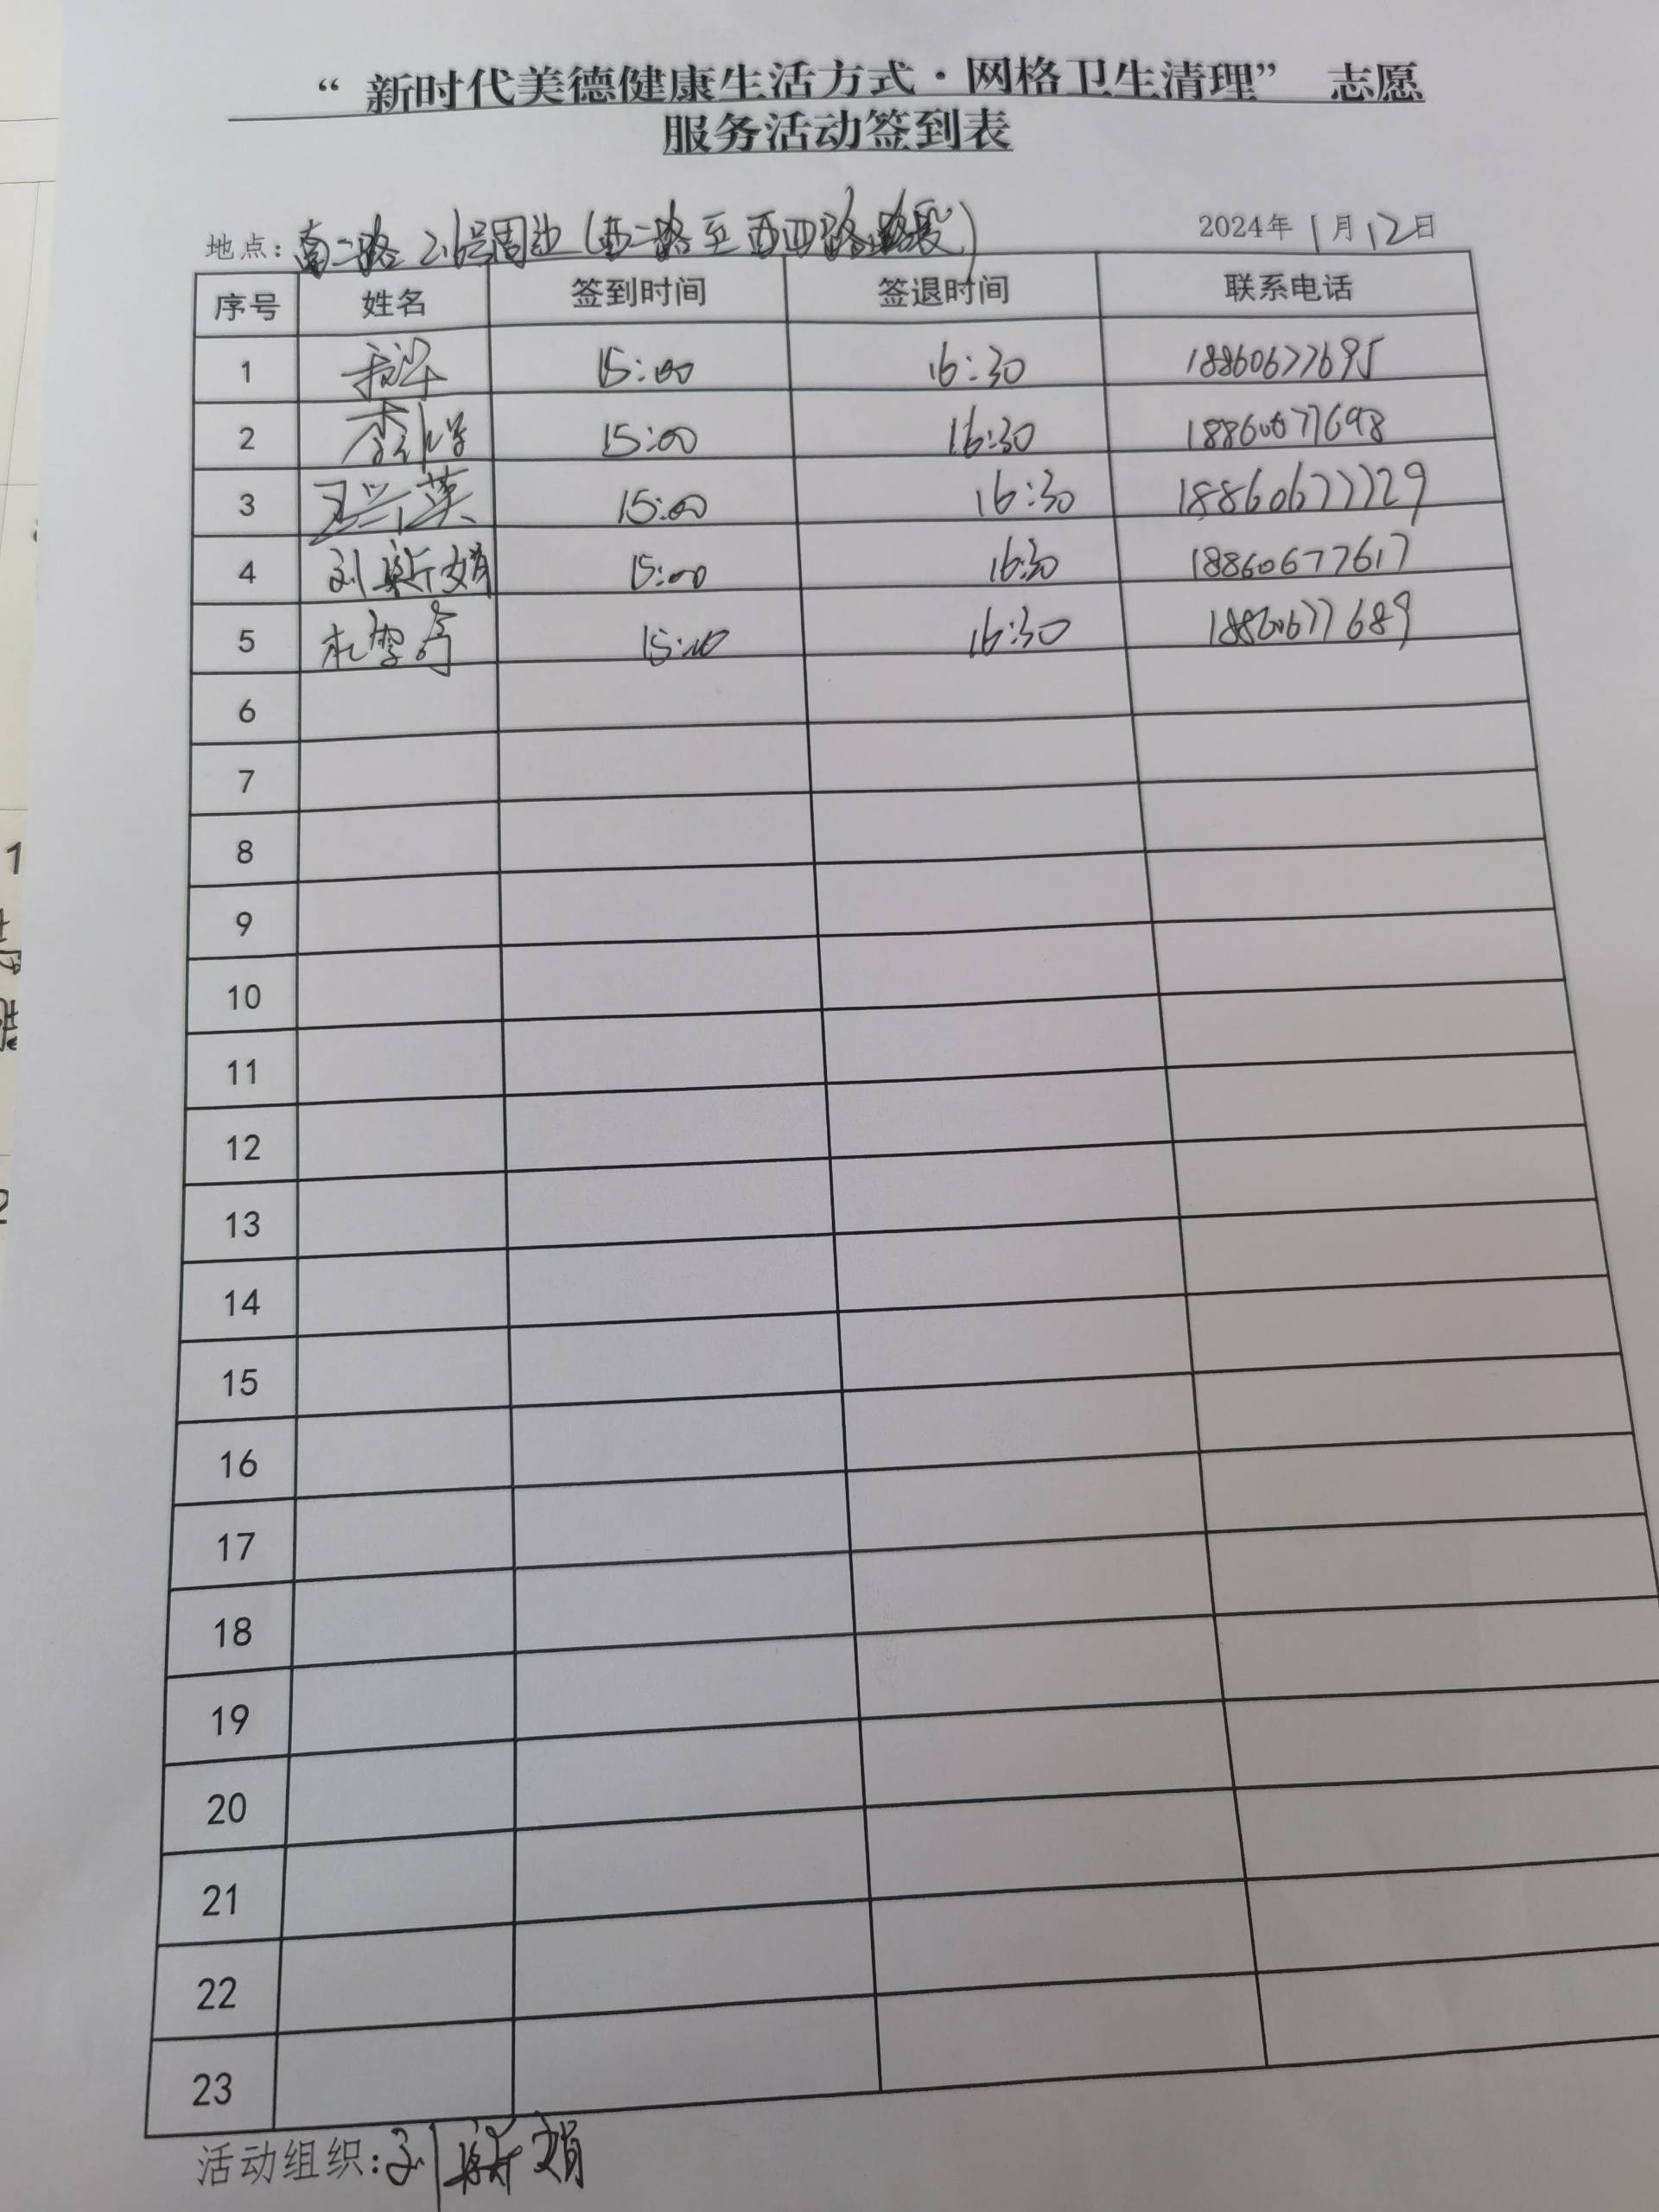 “ 新时代美德健康生活方式·网格卫生清理” 志愿
服务活动签到表
地点: 南二路 216号周边 (西二路至西四路路段)
2024年 1月 12日
序号 姓名 签到时间 签退时间 联系电话
1 15:00 16:30 18860677695
2 15:00 16:30 18860677698
3 15:00 16:30 18860677729
4 刘新娟 15:00 16:30 18860677617
5 杜雪 15:00 16:30 18860677689
6
7
8
9
10
11
12
13
14
15
16
17
18
19
20
21
22
23
活动组织: 刘新娟